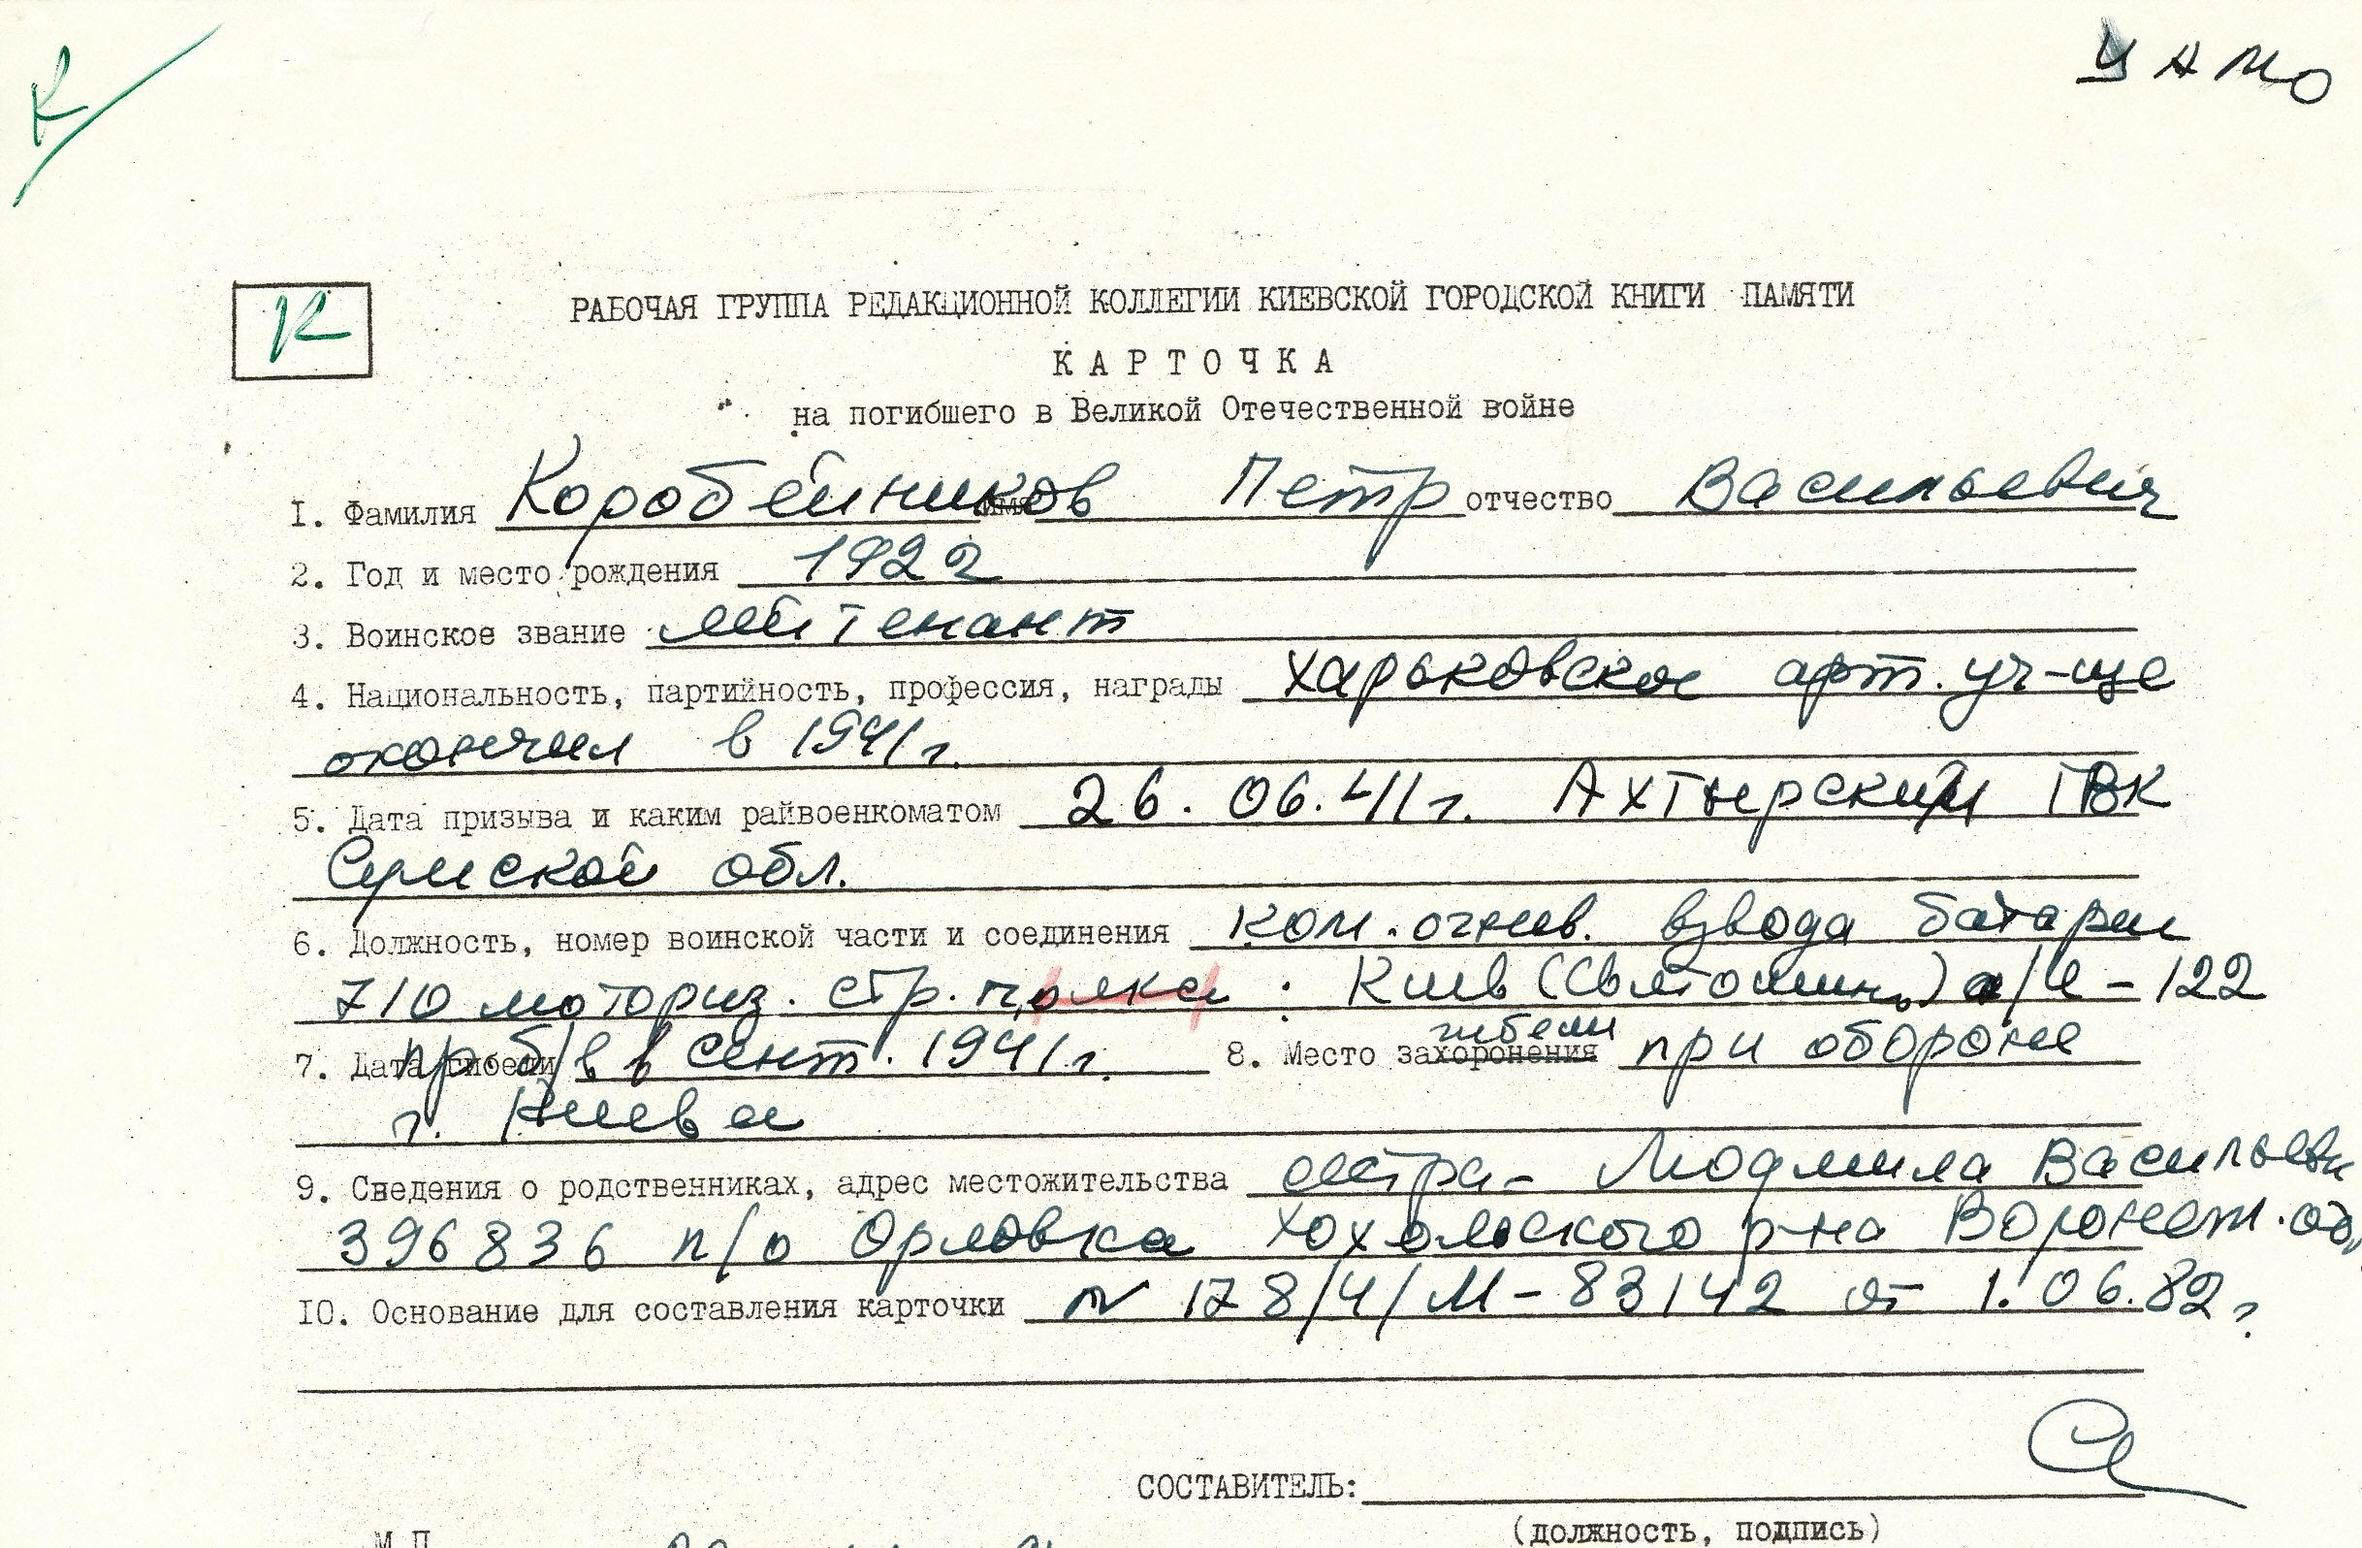 К
ЦАМО
К
РАБОЧАЯ ГРУППА РЕДАКЦИОННОЙ КОЛЛЕГИИ КИЕВСКОЙ ГОРОДСКОЙ КНИГИ ПАМЯТИ
КАРТОЧКА
на погибшего в Великой Отечественной войне
I. Фамилия Коробейников имя Петр отчество Васильевич
2. Год и место рождения 1922
3. Воинское звание лейтенант
4. Национальность, партийность, профессия, награды Харьковское арт. уч-ще
окончил в 1941 г.
5. Дата призыва и каким райвоенкоматом 26.06.41 г. Ахтырский ГВК
Сумской обл.
6. Должность, номер воинской части и соединения ком. огнев. взвода батареи
710 моториз. стр. полка : Киев (Святошинь) п/я-122
7. Дата гибели пр. б/в в сент. 1941 г. 8. Место захоронения гибели при обороне
г. Киева
9. Сведения о родственниках, адрес местожительства сестра- Людмила Васильевн
396836 п/о Орловка Хохольского р-на Воронеж. об
IO. Основание для составления карточки N 178/4/М-83142 от 1.06.82 г.
СОСТАВИТЕЛЬ:
(должность, подпись)
М.П.